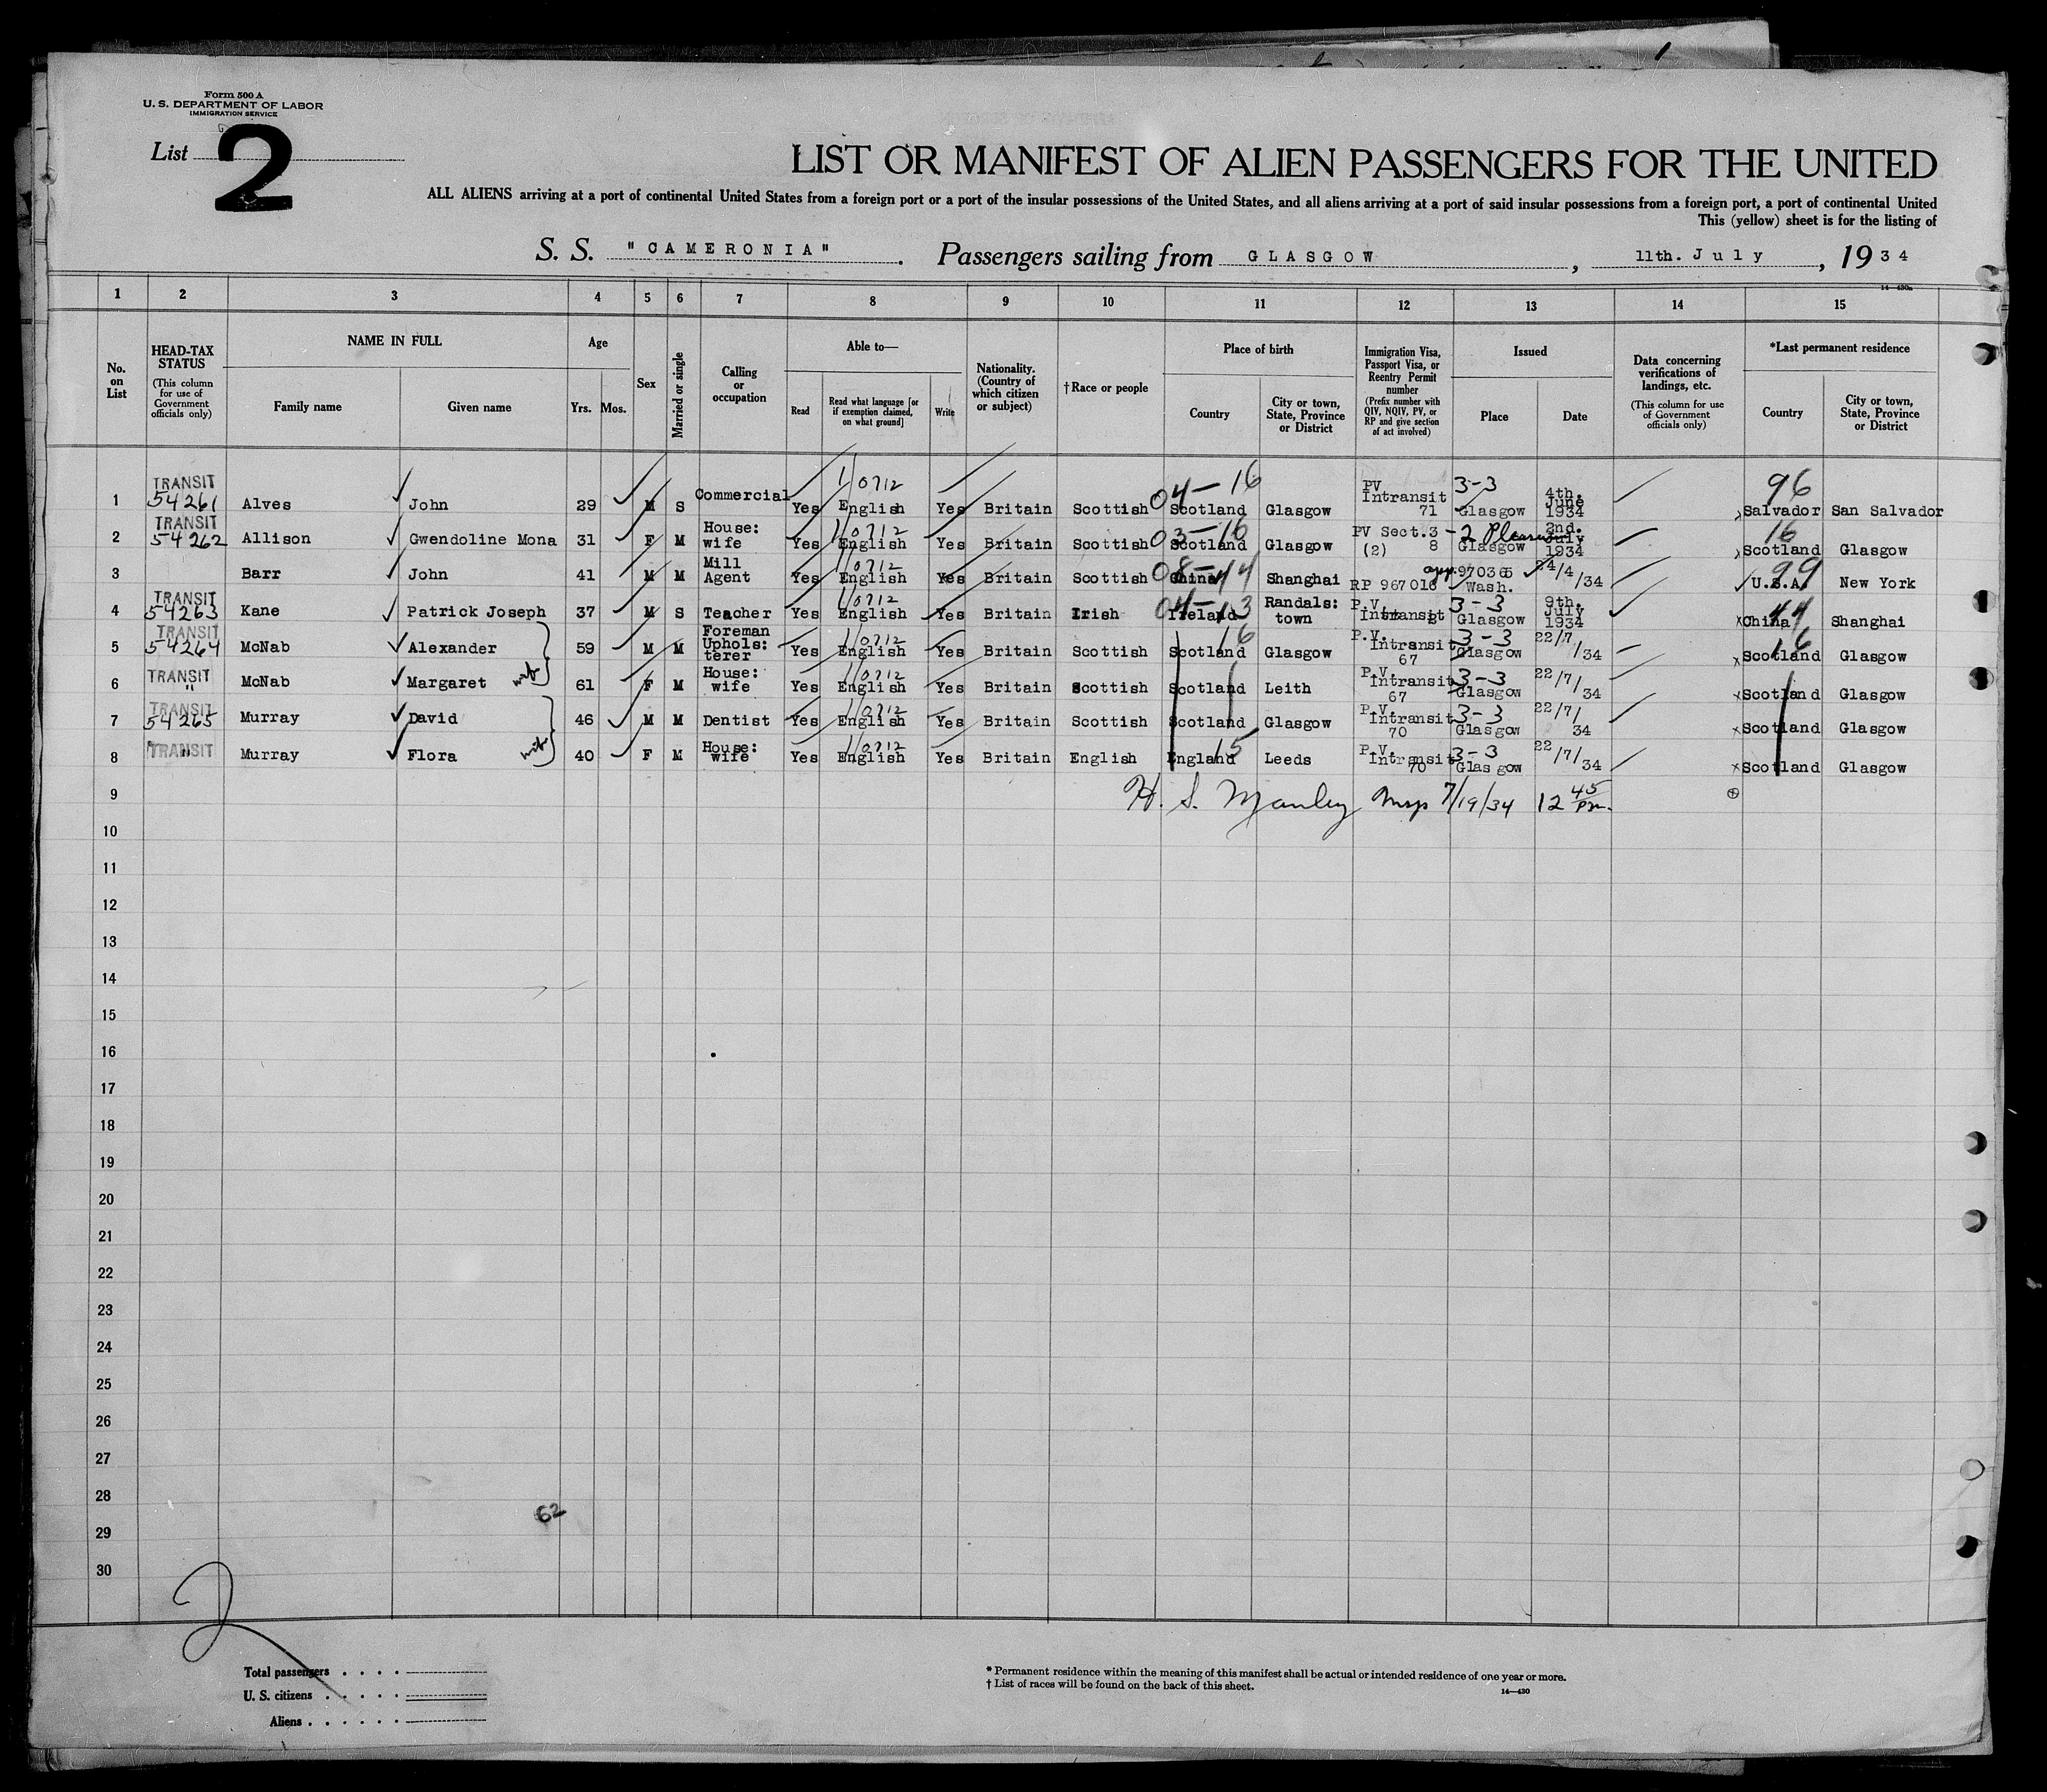 Form 500 A
U. S. DEPARTMENT OF LABOR
IMMIGRATION SERVICE
List 2
LIST OR MANIFEST OF ALIEN PASSENGERS FOR THE UNITED
ALL ALIENS arriving at a port of continental United States from a foreign port or a port of the insular possessions of the United States, and all aliens arriving at a port of said insular possessions from a foreign port, a port of continental United
This (yellow) sheet is for the listing of
S. S. "CAMERONIA". Passengers sailing from GLASGOW, 11th. July, 1934
1 2 3 4 5 6 7 8 9 10 11 12 13 14 15
No. on List
HEAD-TAX STATUS (This column for use of Government officials only)
NAME IN FULL Family name Given name
Age Yrs. Mos.
Sex
Married or single
Calling or occupation
Able to— Read Read what language [or if exemption claimed, on what ground] Write
Nationality. (Country of which citizen or subject)
†Race or people
Place of birth Country City or town, State, Province or District
Immigration Visa, Passport Visa, or Reentry Permit number (Prefix number with QIV, NQIV, PV, or RP and give section of act involved)
Issued Place Date
Data concerning verifications of landings, etc. (This column for use of Government officials only)
*Last permanent residence Country City or town, State, Province or District
1 TRANSIT 54261 Alves John 29 M S Commercial Yes English 10712 Yes Britain Scottish 04-16 Scotland Glasgow PV Intransit 71 3-3 Glasgow 4th. June 1934 96 Salvador San Salvador
2 TRANSIT 54262 Allison Gwendoline Mona 31 F M House: wife Yes English 10712 Yes Britain Scottish 03-16 Scotland Glasgow PV Sect.3 (2) 8 -2 Pleasure Glasgow 2nd. July 1934 16 Scotland Glasgow
3 Barr John 41 M M Mill Agent Yes English 10712 Yes Britain Scottish 08-44 China Shanghai RP 967016 Wash. 24/4/34 99 U.S.A. New York
4 TRANSIT 54263 Kane Patrick Joseph 37 M S Teacher Yes English 10712 Yes Britain Irish 04-13 Ireland Randals: town P.V. Intransit 3-3 Glasgow 9th. July 1934 44 China Shanghai
5 TRANSIT 54264 McNab Alexander 59 M M Foreman Uphols: terer Yes English 10712 Yes Britain Scottish 16 Scotland Glasgow P.V. Intransit 67 3-3 Glasgow 22/7/34 16 Scotland Glasgow
6 TRANSIT " McNab Margaret wife 61 F M House: wife Yes English 10712 Yes Britain Scottish Scotland Leith P.V. Intransit 67 3-3 Glasgow 22/7/34 Scotland Glasgow
7 TRANSIT 54265 Murray David 46 M M Dentist Yes English 10712 Yes Britain Scottish Scotland Glasgow P.V. Intransit 70 3-3 Glasgow 22/7/34 Scotland Glasgow
8 TRANSIT " Murray Flora wife 40 F M House: wife Yes English 10712 Yes Britain English 15 England Leeds P.V. Intransit 70 3-3 Glasgow 22/7/34 Scotland Glasgow
9 H. S. Manley 7/19/34 12 45 Pm.
10
11
12
13
14
15
16
17
18
19
20
21
22
23
24
25
26
27
28
62
29
30
2
Total passengers
U. S. citizens
Aliens
* Permanent residence within the meaning of this manifest shall be actual or intended residence of one year or more.
† List of races will be found on the back of this sheet.
14—430